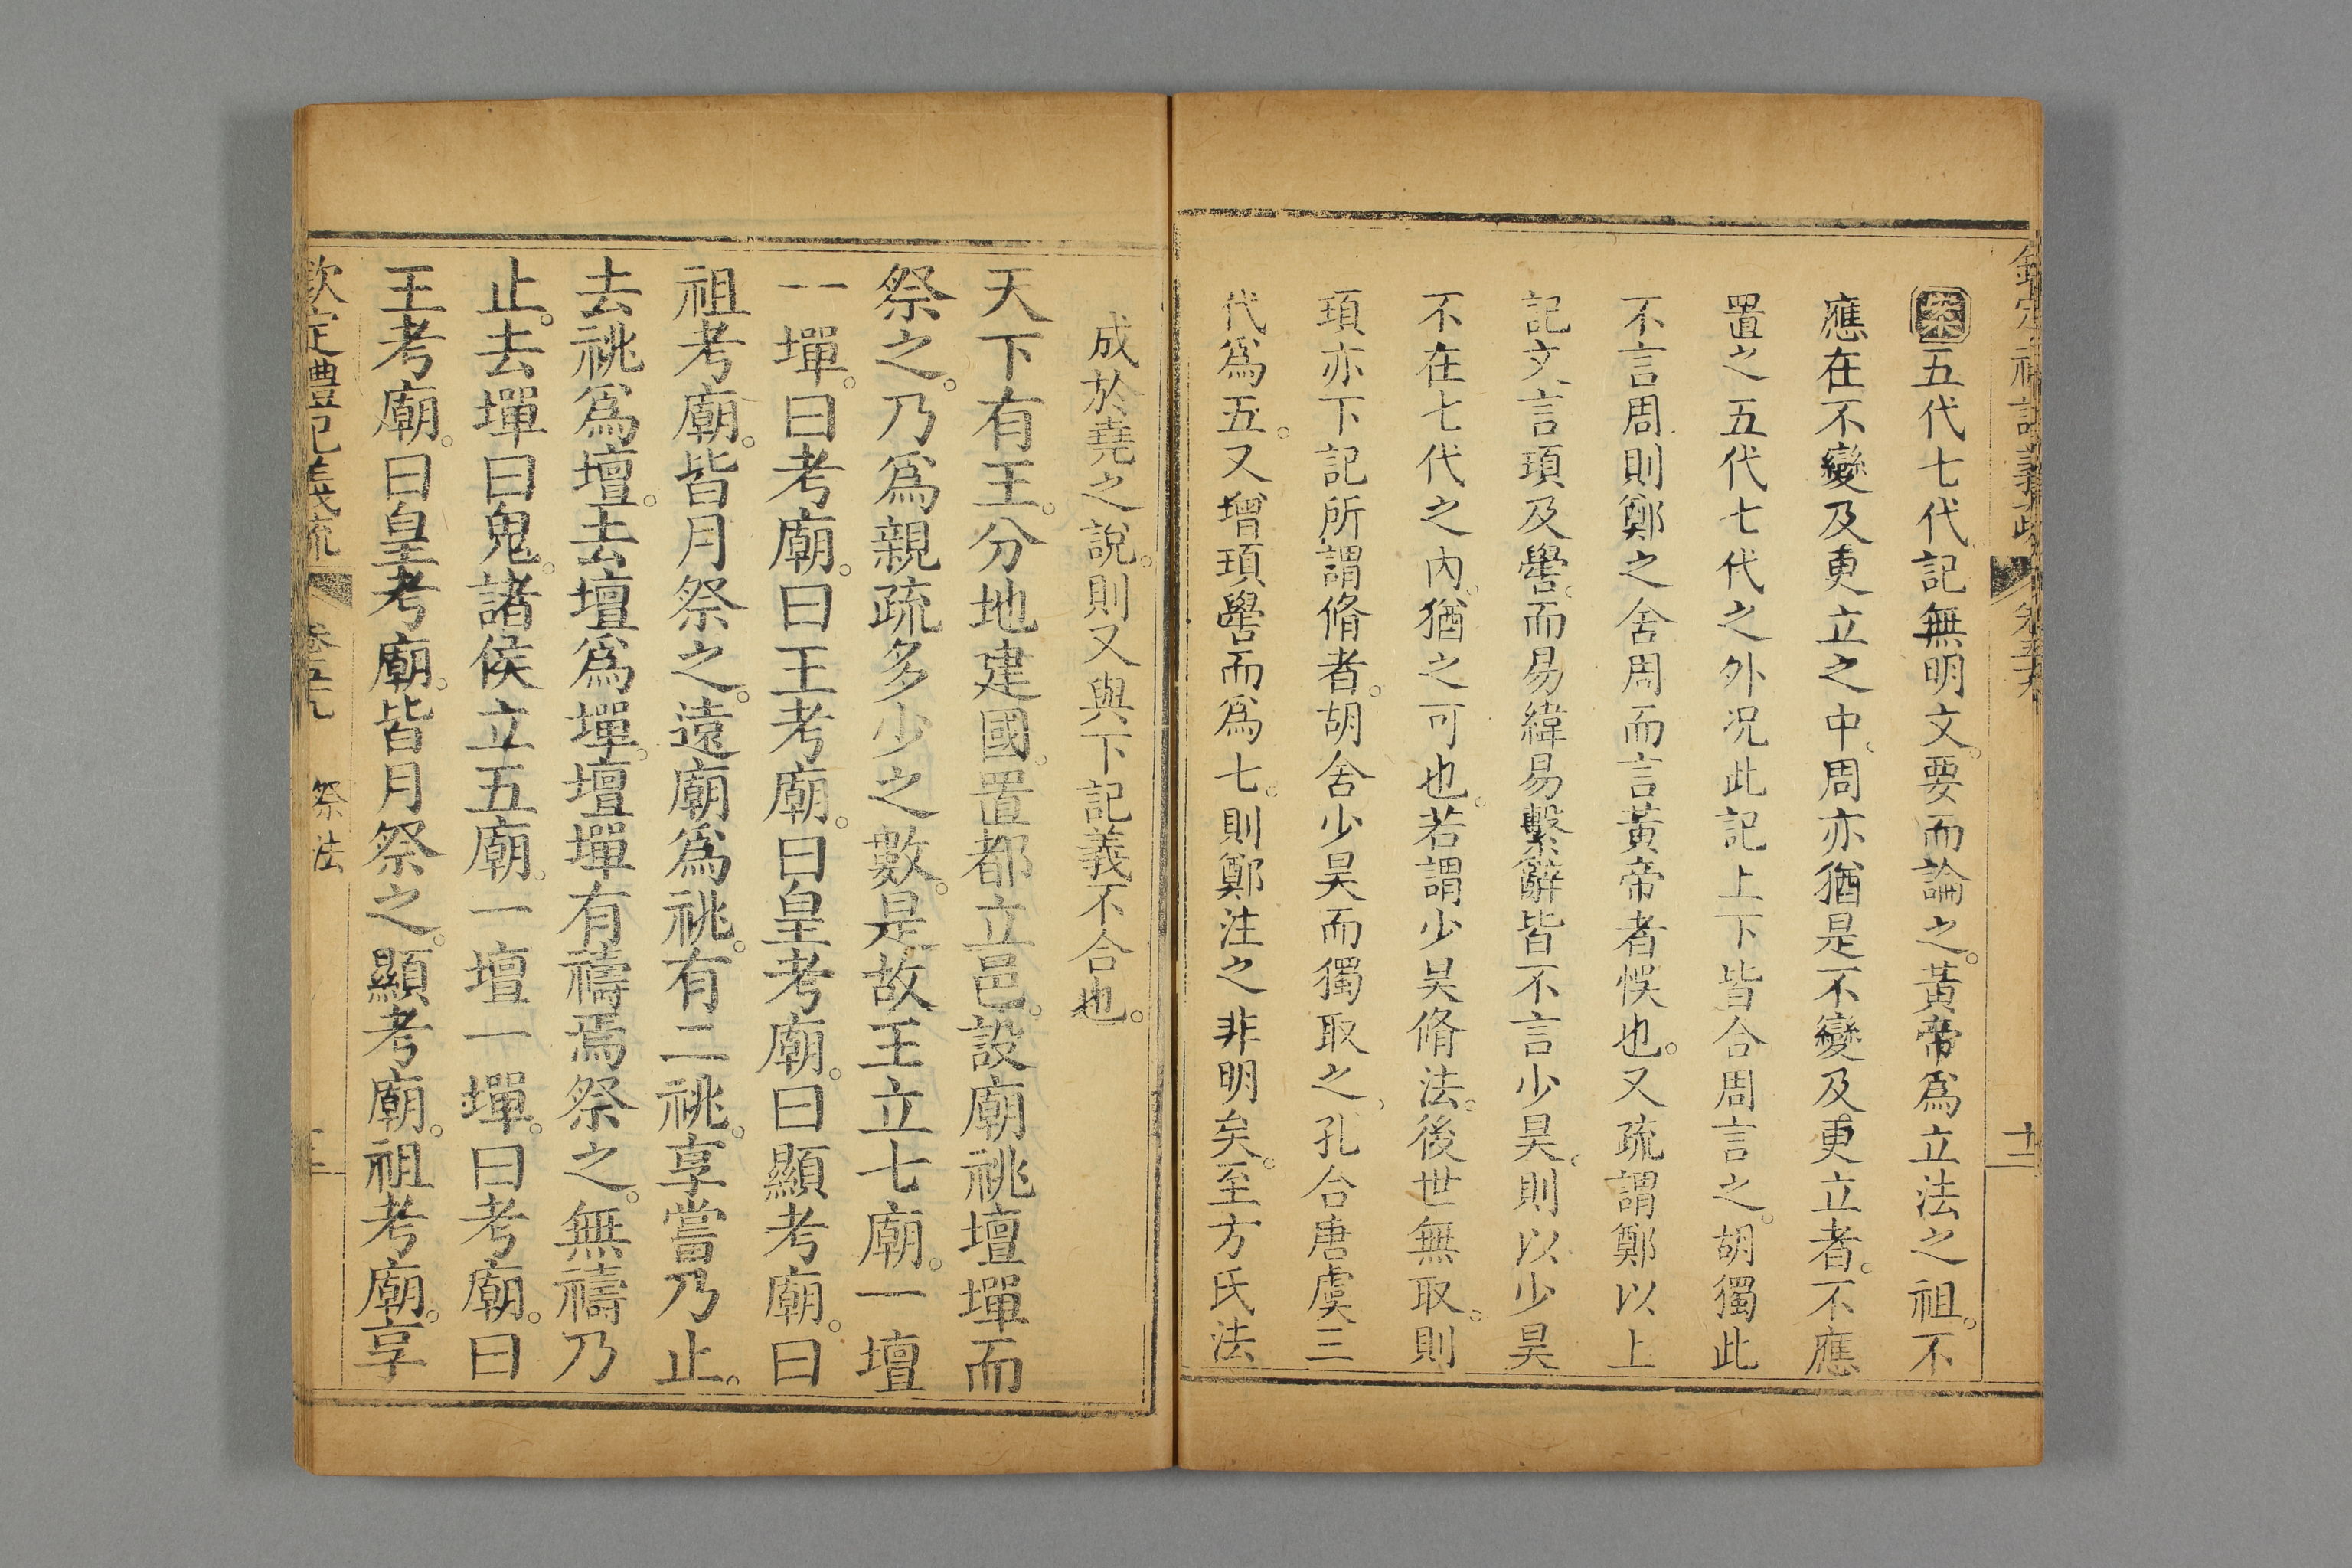 欽定禮記義疏 卷五十九 十二
案五代七代記無明文。要而論之。黃帝爲立法之祖。不
應在不變及更立之中、周亦猶是不變及更立者。不應
置之五代七代之外況此記上下皆合周言之。胡獨此
不言周則鄭之舍周而言黃帝者悞也。又疏謂鄭以上
記文、言頊及嚳。而易緯易繫辭皆不言少昊。則以少昊
不在七代之內。猶之可也。若謂少昊脩法。後世無取。則
頊亦下記所謂脩者。胡舍少昊而獨取之、孔合唐虞三
代爲五。又增頊嚳而爲七。則鄭注之非明矣。至方氏法
成於堯之說。則又與下記義不合也。
天下有王。分地建國。置都立邑。設廟祧壇墠而
祭之。乃爲親疏多少之數。是故王立七廟。一壇
一墠。曰考廟。曰王考廟。曰皇考廟。曰顯考廟。曰
祖考廟。皆月祭之。遠廟爲祧。有二祧。享嘗乃止。
去祧爲壇。去壇爲墠。壇墠有禱焉祭之。無禱乃
止。去墠曰鬼。諸侯立五廟。一壇一墠。曰考廟。曰
王考廟。曰皇考廟。皆月祭之。顯考廟。祖考廟。享
欽定禮記義疏 卷五十九 祭法